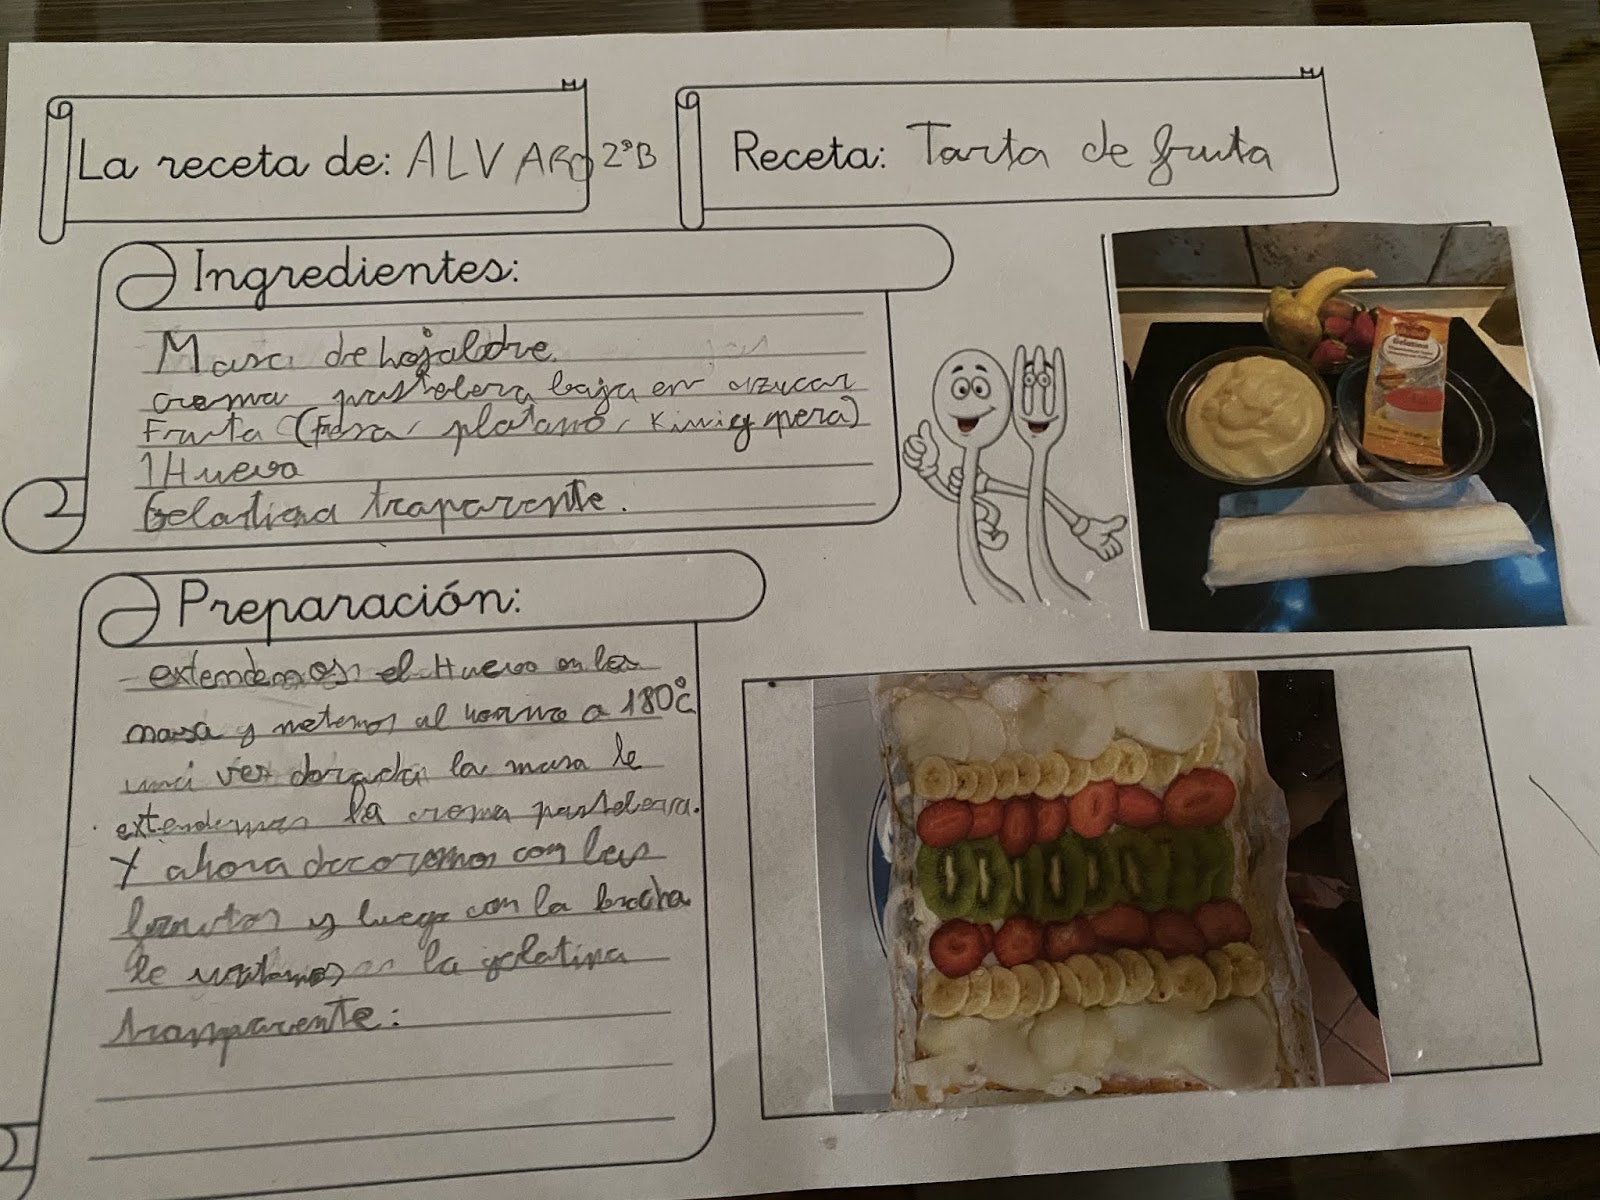 La receta de: ALVARO 2ºB
Receta: Tarta de fruta
Ingredientes:
Masa de hojaldre
crema pastelera baja en azucar
Fruta (Fresa, platano, Kiwi y pera)
1 Huevo
Gelatiena traparente.
Preparación:
extendemos el Huevo en la
masa y metemos al horno a 180ºC
una vez dorada la masa le
extendemos la crema pastelera.
Y ahora decoremos con las
frutas y luego con la brocha
le untamos la gelatina
transparente.
Gelatina